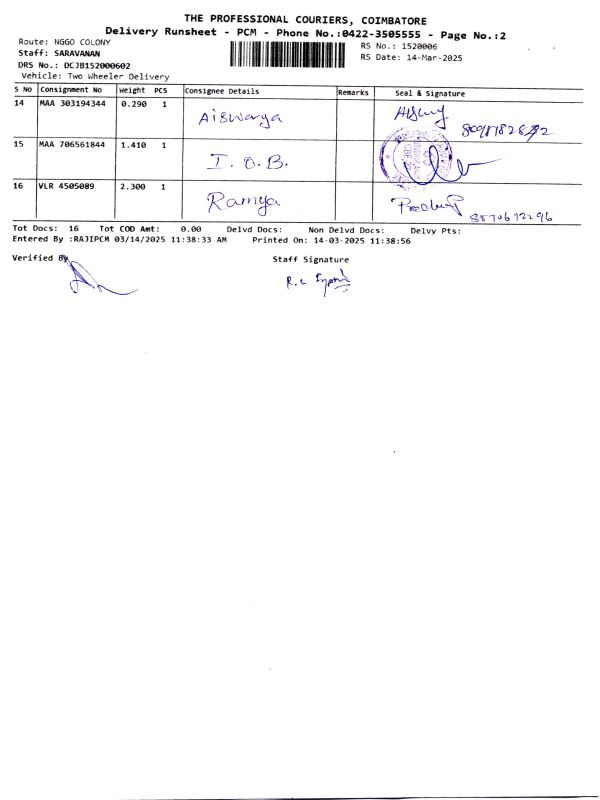 THE PROFESSIONAL COURIERS, COIMBATORE
Delivery Runsheet - PCM - Phone No.:0422-3505555 - Page No.:2
Route: NGGO COLONY
RS No.: 1520006
Staff: SARAVANAN
RS Date: 14-Mar-2025
DRS No.: DCJB152000602
Vehicle: Two Wheeler Delivery
S No Consignment No Weight PCS Consignee Details Remarks Seal & Signature
14 MAA 303194344 0.290 1 Aiswarya
15 MAA 706561844 1.410 1 I.O.B.
16 VLR 4505089 2.300 1 Ramya
8870672296
Tot Docs: 16 Tot COD Amt: 0.00 Delvd Docs: Non Delvd Docs: Delvy Pts:
Entered By :RAJIPCM 03/14/2025 11:38:33 AM Printed On: 14-03-2025 11:38:56
Verified By
Staff Signature